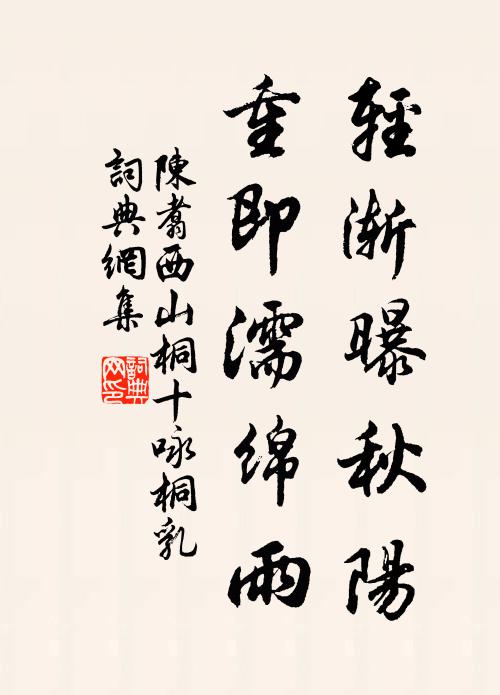 輕漸曝秋陽
重即濡綿雨
陳翥西山桐十咏桐乳
詞典網集
詞典網印